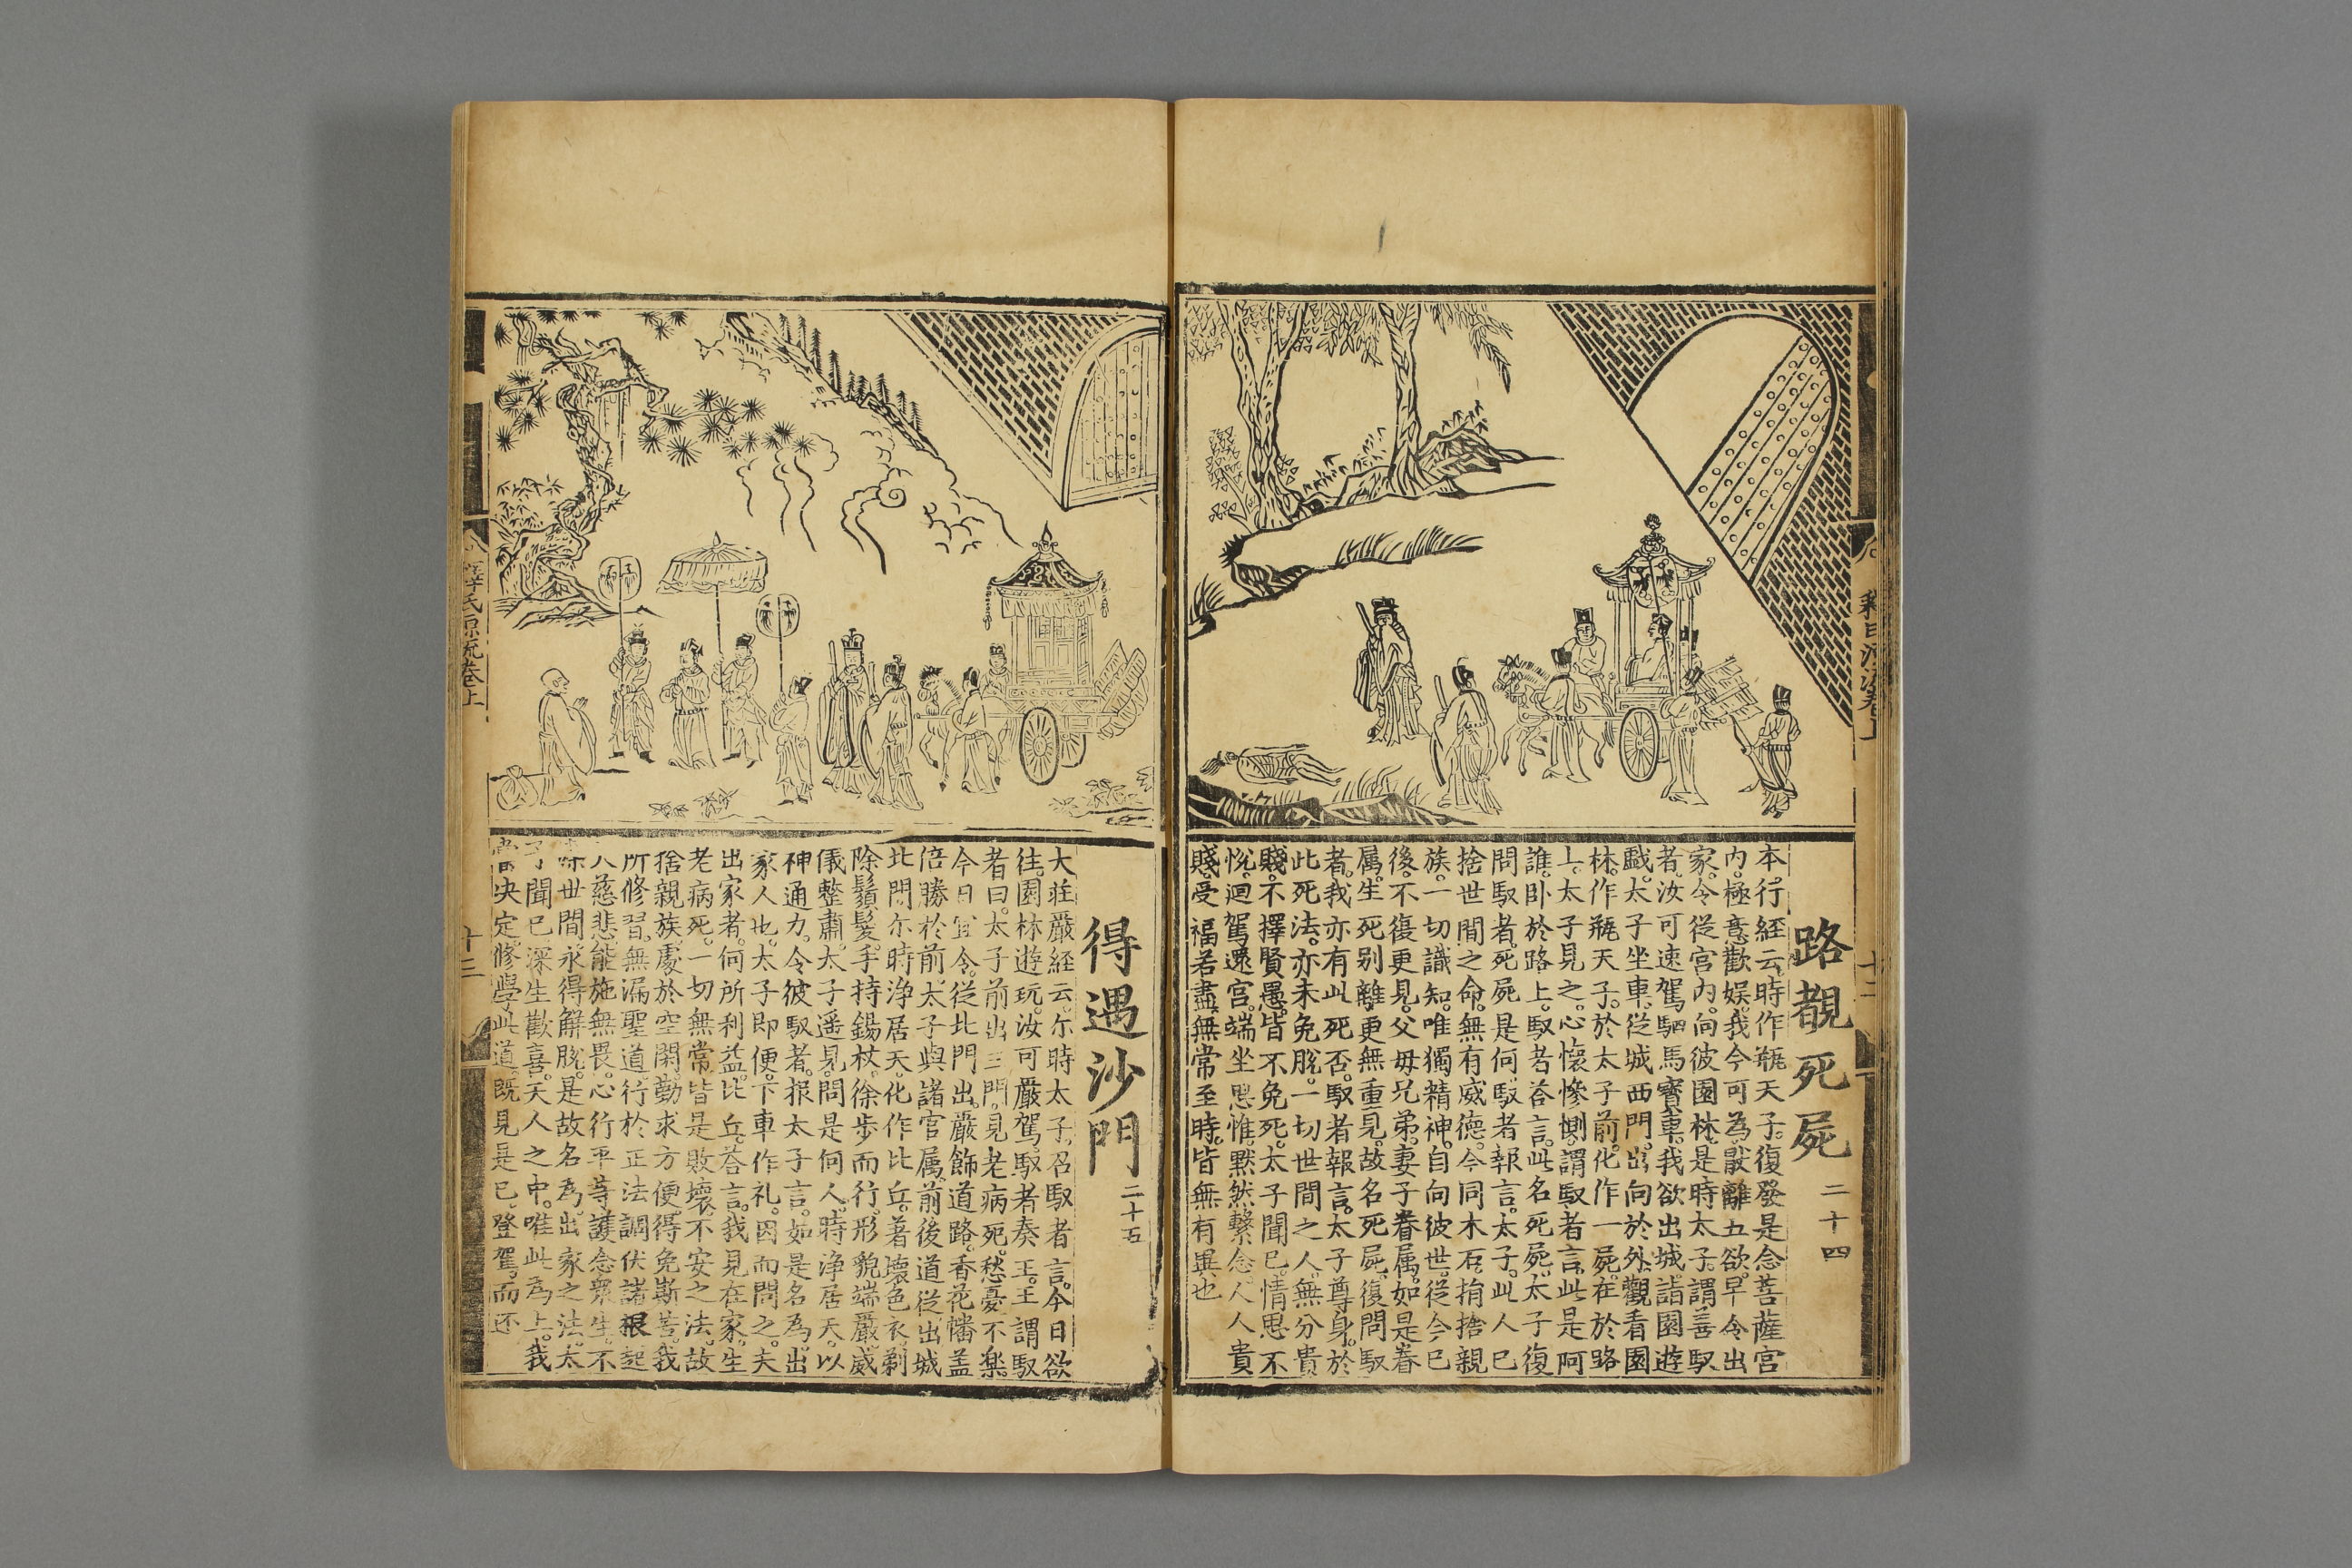 路覩死屍 二十四
本行経云。時作瓶天子。復發是念。菩薩宮
内。極意歡娱。我今可為厭離五欲。早令出
家。令從宮内。向彼園林。是時太子。謂善馭
者。汝可速駕駟馬寶車。我欲出城。詣園遊
戯。太子坐車。従城西門。出向於外。觀看園
林。作瓶天子。於太子前。化作一屍。在於路
上。太子見之。心懷慘惻。謂馭者言。此是阿
誰。卧於路上。馭者荅言。此名死屍。太子復
問馭者。死屍是何。馭者報言。太子。此人已
捨世間之命。無有威德。今同木石。捐捨親
族。一切識知。唯獨精神。自向彼世。従今已
後。不復更見。父母兄弟。妻子眷属。如是眷
属。生死别離。更無重見。故名死屍。復問馭
者。我亦有此死否。馭者報言。太子尊身。於
此死法。亦未免脫。一切世間之人。無分貴
賤。不擇賢愚。皆不免死。太子聞已。情思不
恱。迴駕還宮。端坐思惟。黙然繫念。人人貴
賤。受福若盡。無常至時。皆無有異也
得遇沙門 二十五
大莊嚴経云。尔時太子。召馭者言。今日欲
往。園林遊玩。汝可嚴駕。馭者奏王。王謂馭
者曰。太子前出三門。見老病死。愁憂不樂。
今日宜令。從北門出。嚴飾道路。香花幡盖
倍勝於前。太子與諸官属。前後道従。出城
北門。尔時浄居天。化作比丘。著壊色衣。剃
除鬚髮。手持錫杖。徐歩而行。形貌端嚴。威
儀整肅。太子遥見。問是何人。時浄居天。以
神通力。令彼馭者。报太子言。如是名為。出
家人也。太子即便。下車作礼。因而問之。夫
出家者。何所利益。比丘荅言。我見在家。生
老病死。一切無常。皆是敗壊。不安之法。故
捨親族。處於空閑。勤求方便。得免斯苦。我
所修習。無漏聖道。行於正法。調伏諸根。起
大慈悲。能施無畏。心行平等。護念衆生。不
染世間。永得解脫。是故名為。出家之法。太
子聞已。深生歡喜。天人之中。唯此為上。我
當决定。修學此道。既見是已。登駕而还
釋氏源流卷上
十三